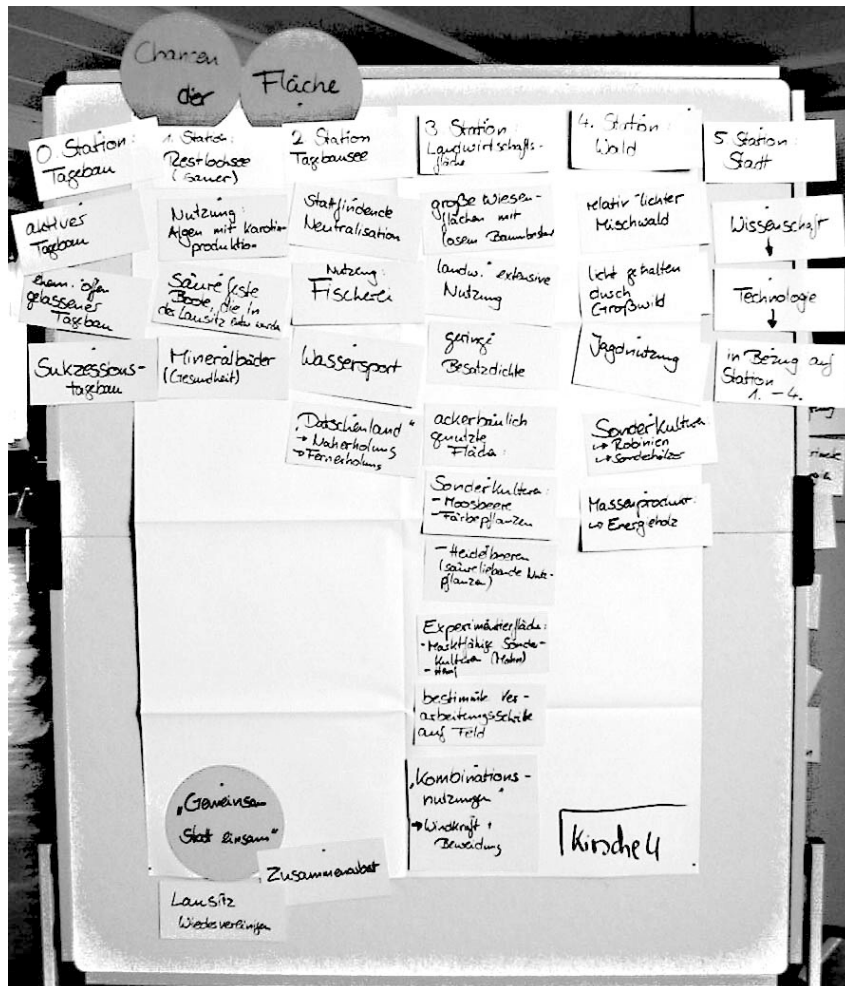 Chancen
der
Fläche
0. Station:
Tagebau
aktiver
Tagebau
ehem. offen
gelassener
Tagebau
Sukzessions-
tagebau
1. Station:
Restlochsee
(sauer)
Nutzung:
Algen mit Karotin-
produktion
Säurefeste
Boote, die in
der Lausitz
Mineralbäder
(Gesundheit)
2 Station
Tagebausee
Statfindende
Neutralisation
Nutzung:
Fischerei
Wassersport
"Datschenland"
→ Naherholung
→ Fernerholung
3 Station:
Landwirtschafts-
fläche
große Wiesen-
flächen mit
losem Baumbestand
landw. extensive
Nutzung
geringe
Besatzdichte
ackerbaulich
genutzte
Fläche:
Sonderkulturen:
- Moosbeere
- Färbepflanzen
- Heidelbeeren
(säureliebende Nutz-
pflanzen)
Experimentierfläche:
- Marktfähige Sonder-
kulturen (Mohn)
- Hanf
bestimmte Ver-
arbeitungsschritte
auf Feld
"Kombinations-
nutzungen"
→ Windkraft +
Beweidung
4. Station:
Wald
relativ lichter
Mischwald
licht gehalten
durch
Großwild
Jagdnutzung
Sonderkulturen
↳ Robinien
↳ Sonderhölzer
Massenproduct:
↳ Energieholz
Kirsche 4
5 Station:
Stadt
Wissenschaft
↓
Technologie
↓
in Bezug auf
Station
1. - 4.
"Gemeinsam
Statt einsam"
Zusammenarbeit
Lausitz
Wiedervereinigen